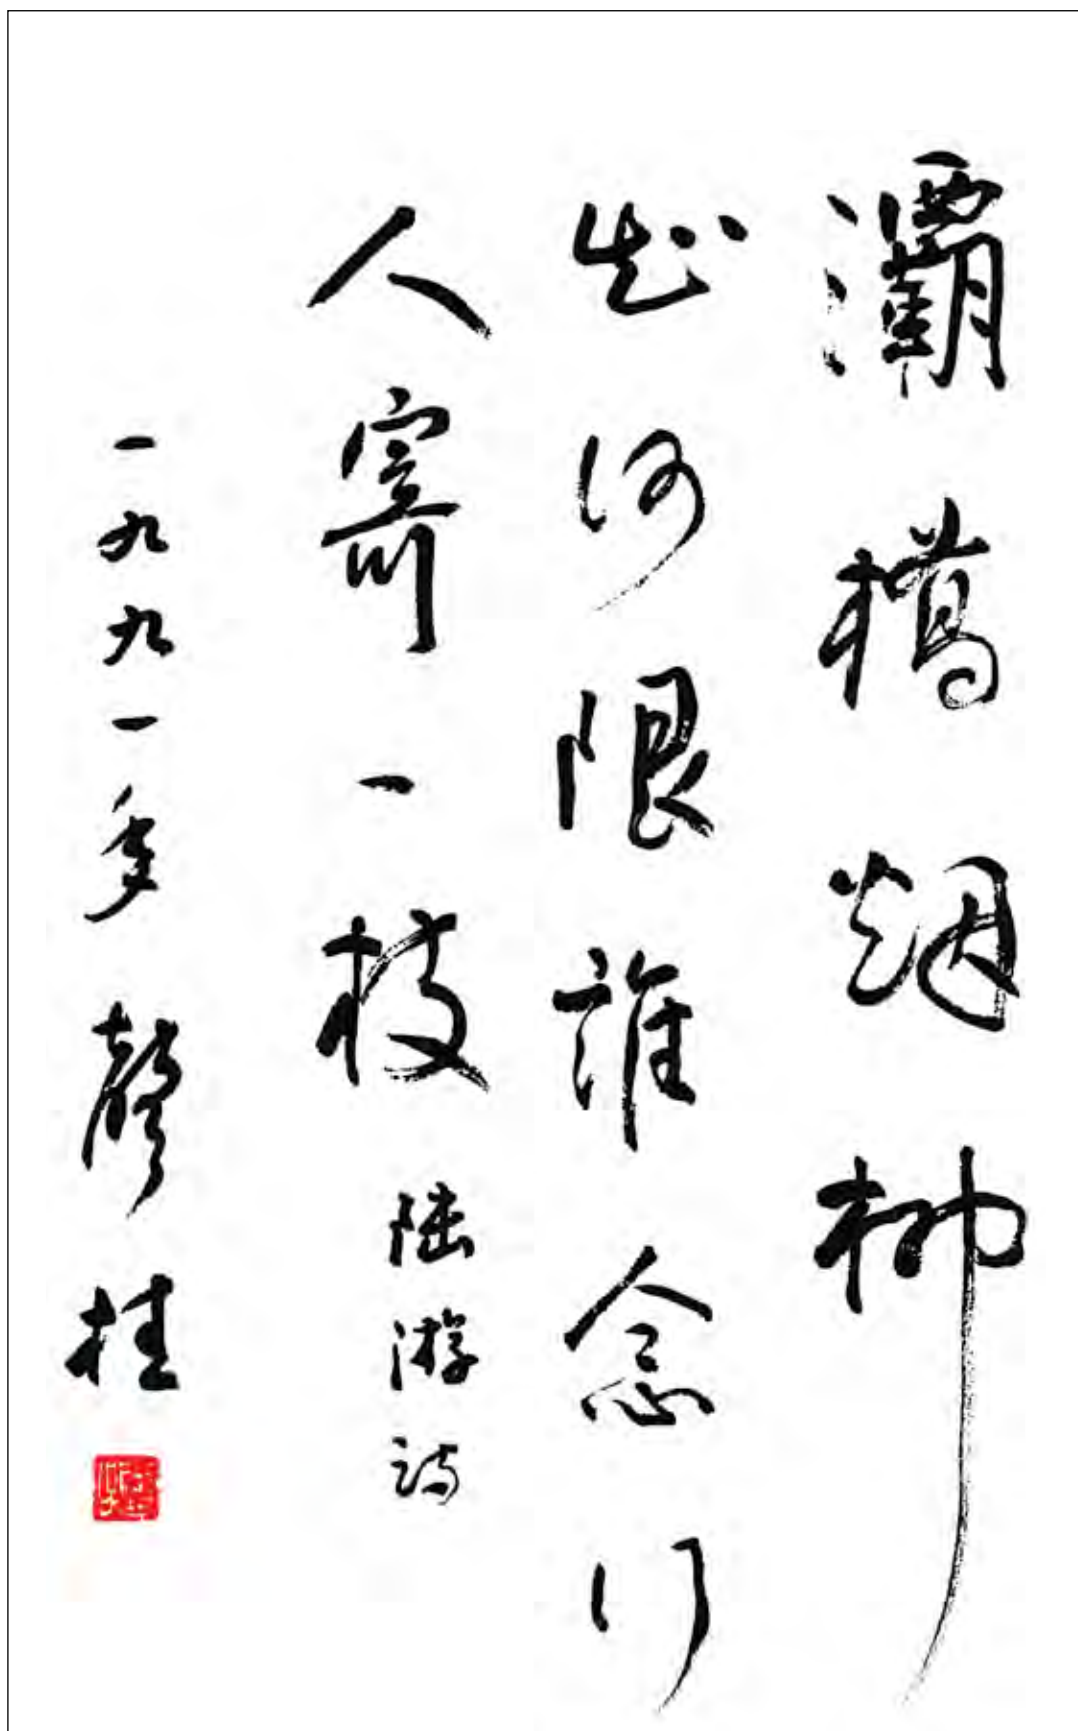 灞橋烟柳
知何限誰念行
人寄一枝 陸游詩
一九九一年 聲桂